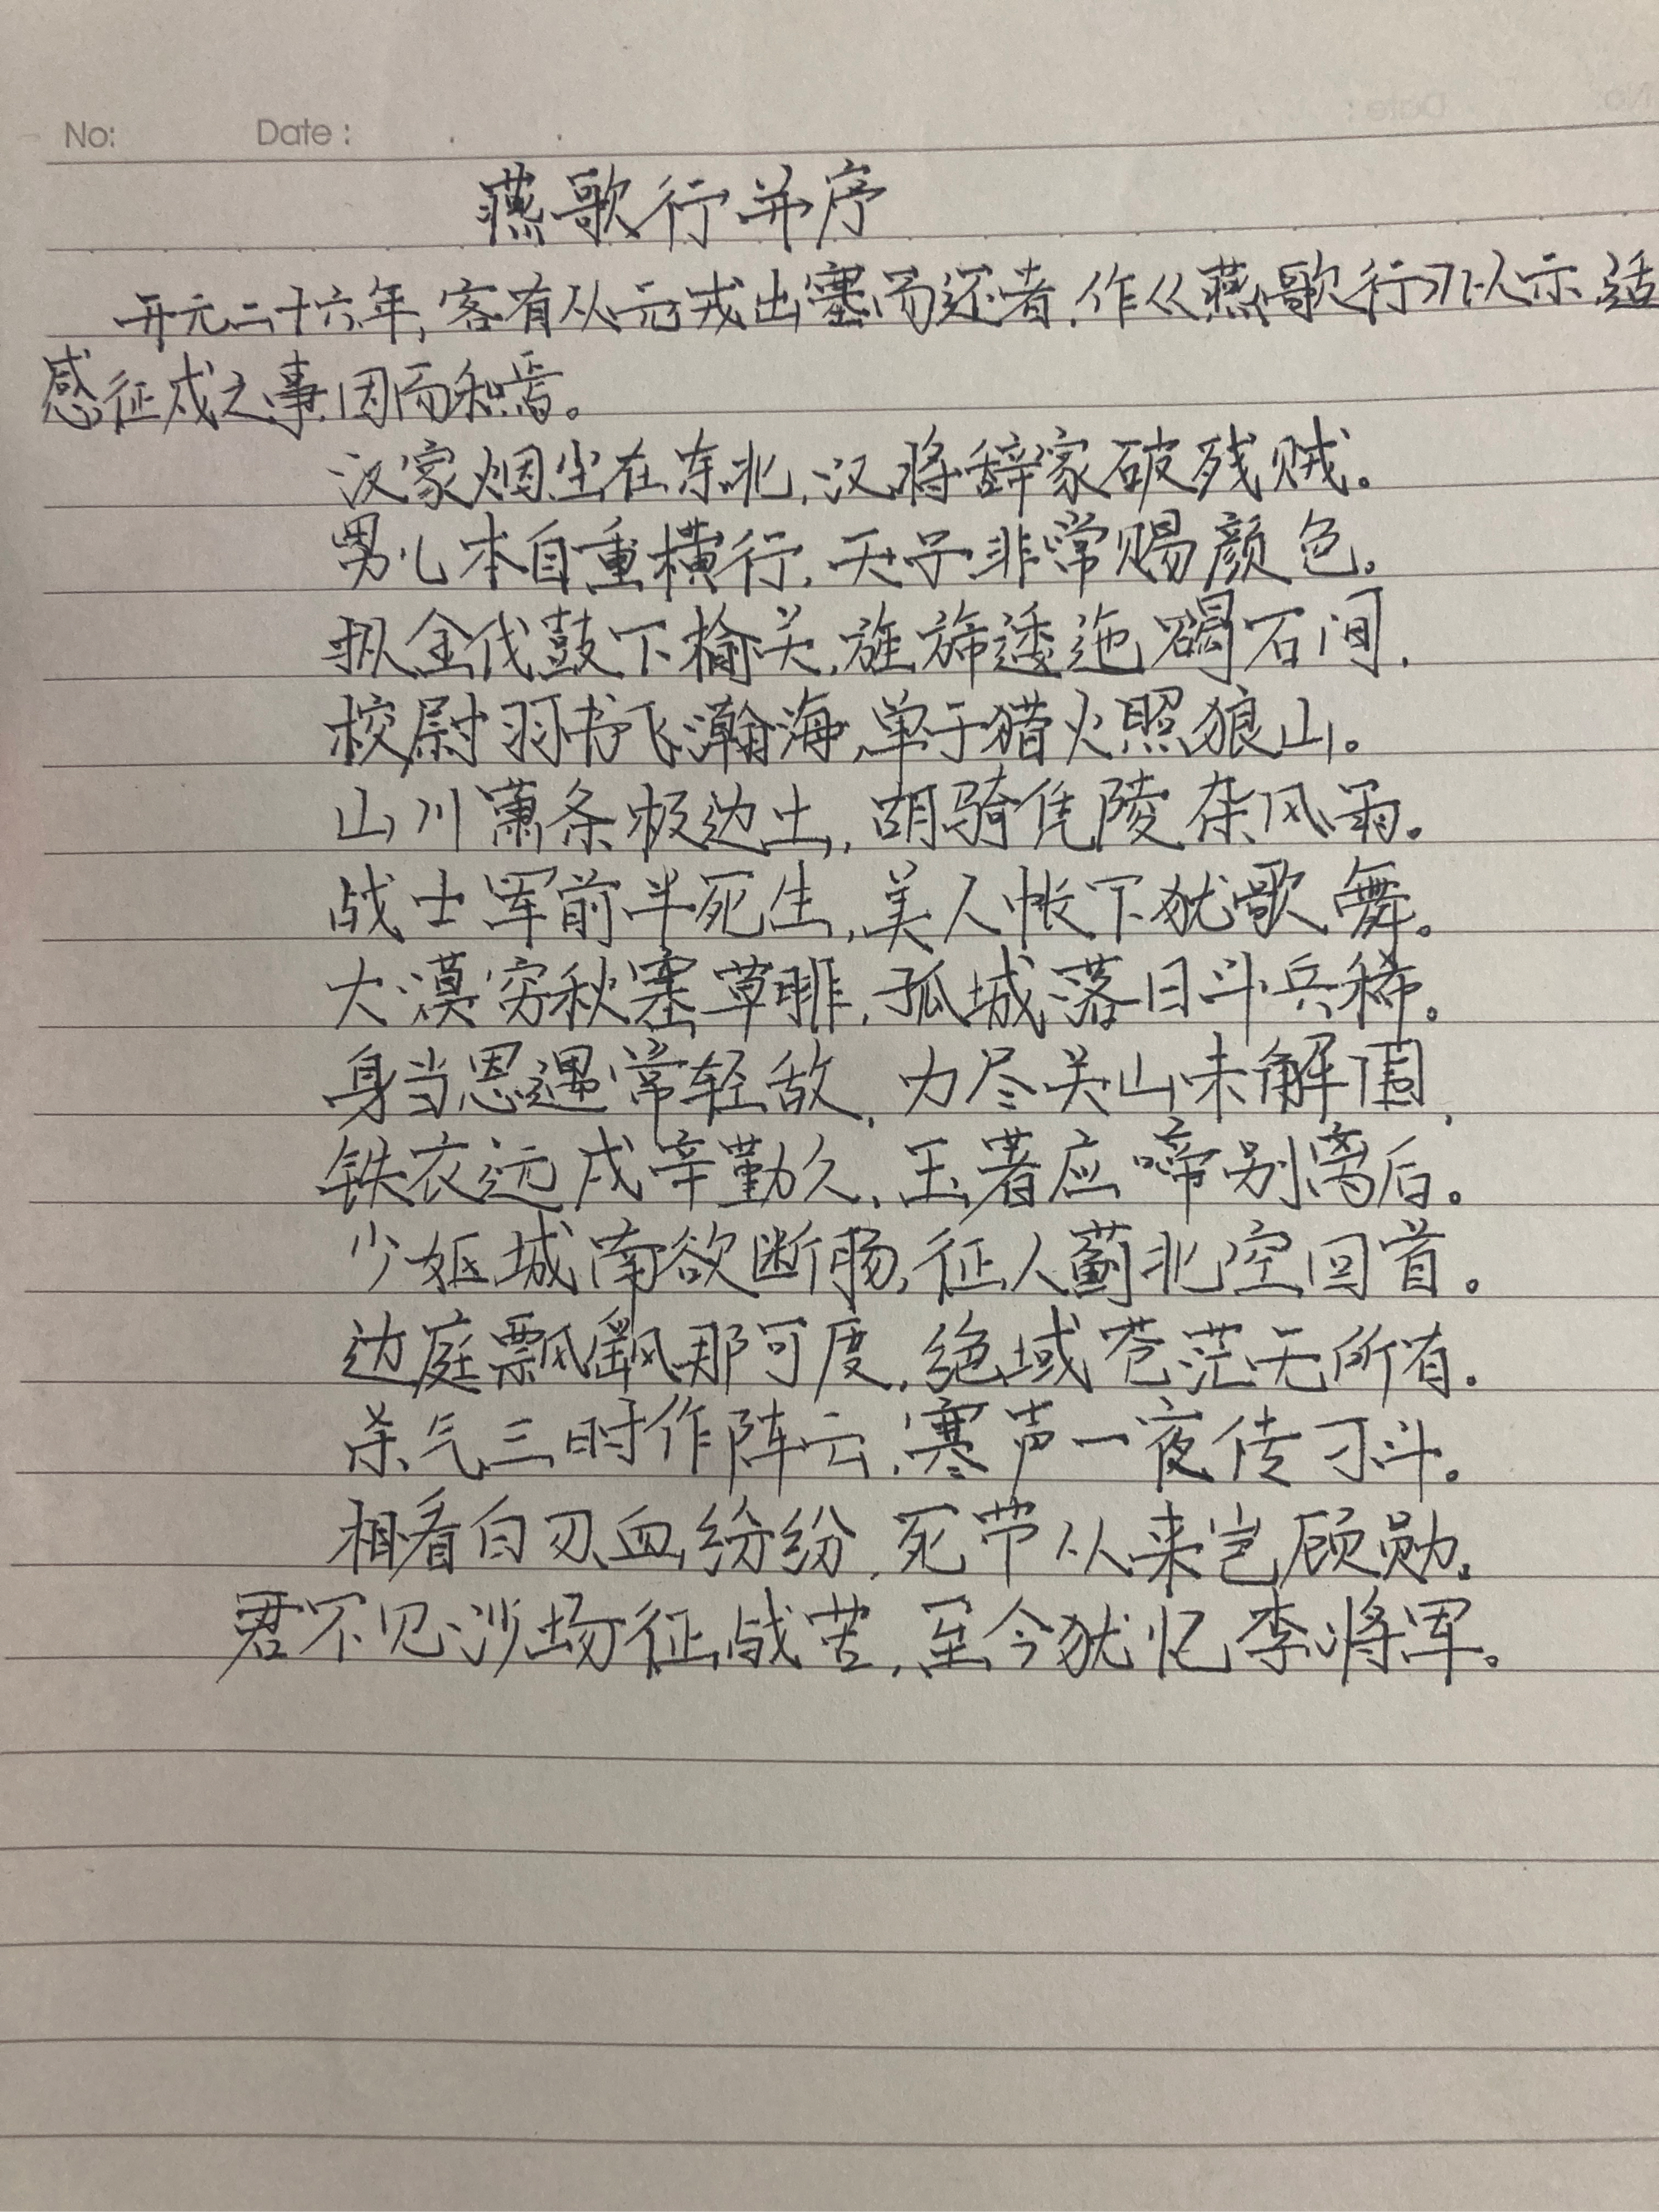 No:    Date:    .    .
燕歌行并序
开元二十六年,客有从元戎出塞而还者,作《燕歌行》以示,适
感征戍之事,因而和焉。
汉家烟尘在东北,汉将辞家破残贼。
男儿本自重横行,天子非常赐颜色。
摐金伐鼓下榆关,旌旆逶迤碣石间.
校尉羽书飞瀚海,单于猎火照狼山。
山川萧条极边土,胡骑凭陵杂风雨。
战士军前半死生,美人帐下犹歌舞。
大漠穷秋塞草腓,孤城落日斗兵稀。
身当恩遇常轻敌,力尽关山未解围,
铁衣远戍辛勤久,玉箸应啼别离后。
少妇城南欲断肠,征人蓟北空回首。
边庭飘飖那可度,绝域苍茫无所有.
杀气三时作阵云,寒声一夜传刁斗。
相看白刃血纷纷,死节从来岂顾勋。
君不见沙场征战苦,至今犹忆李将军。